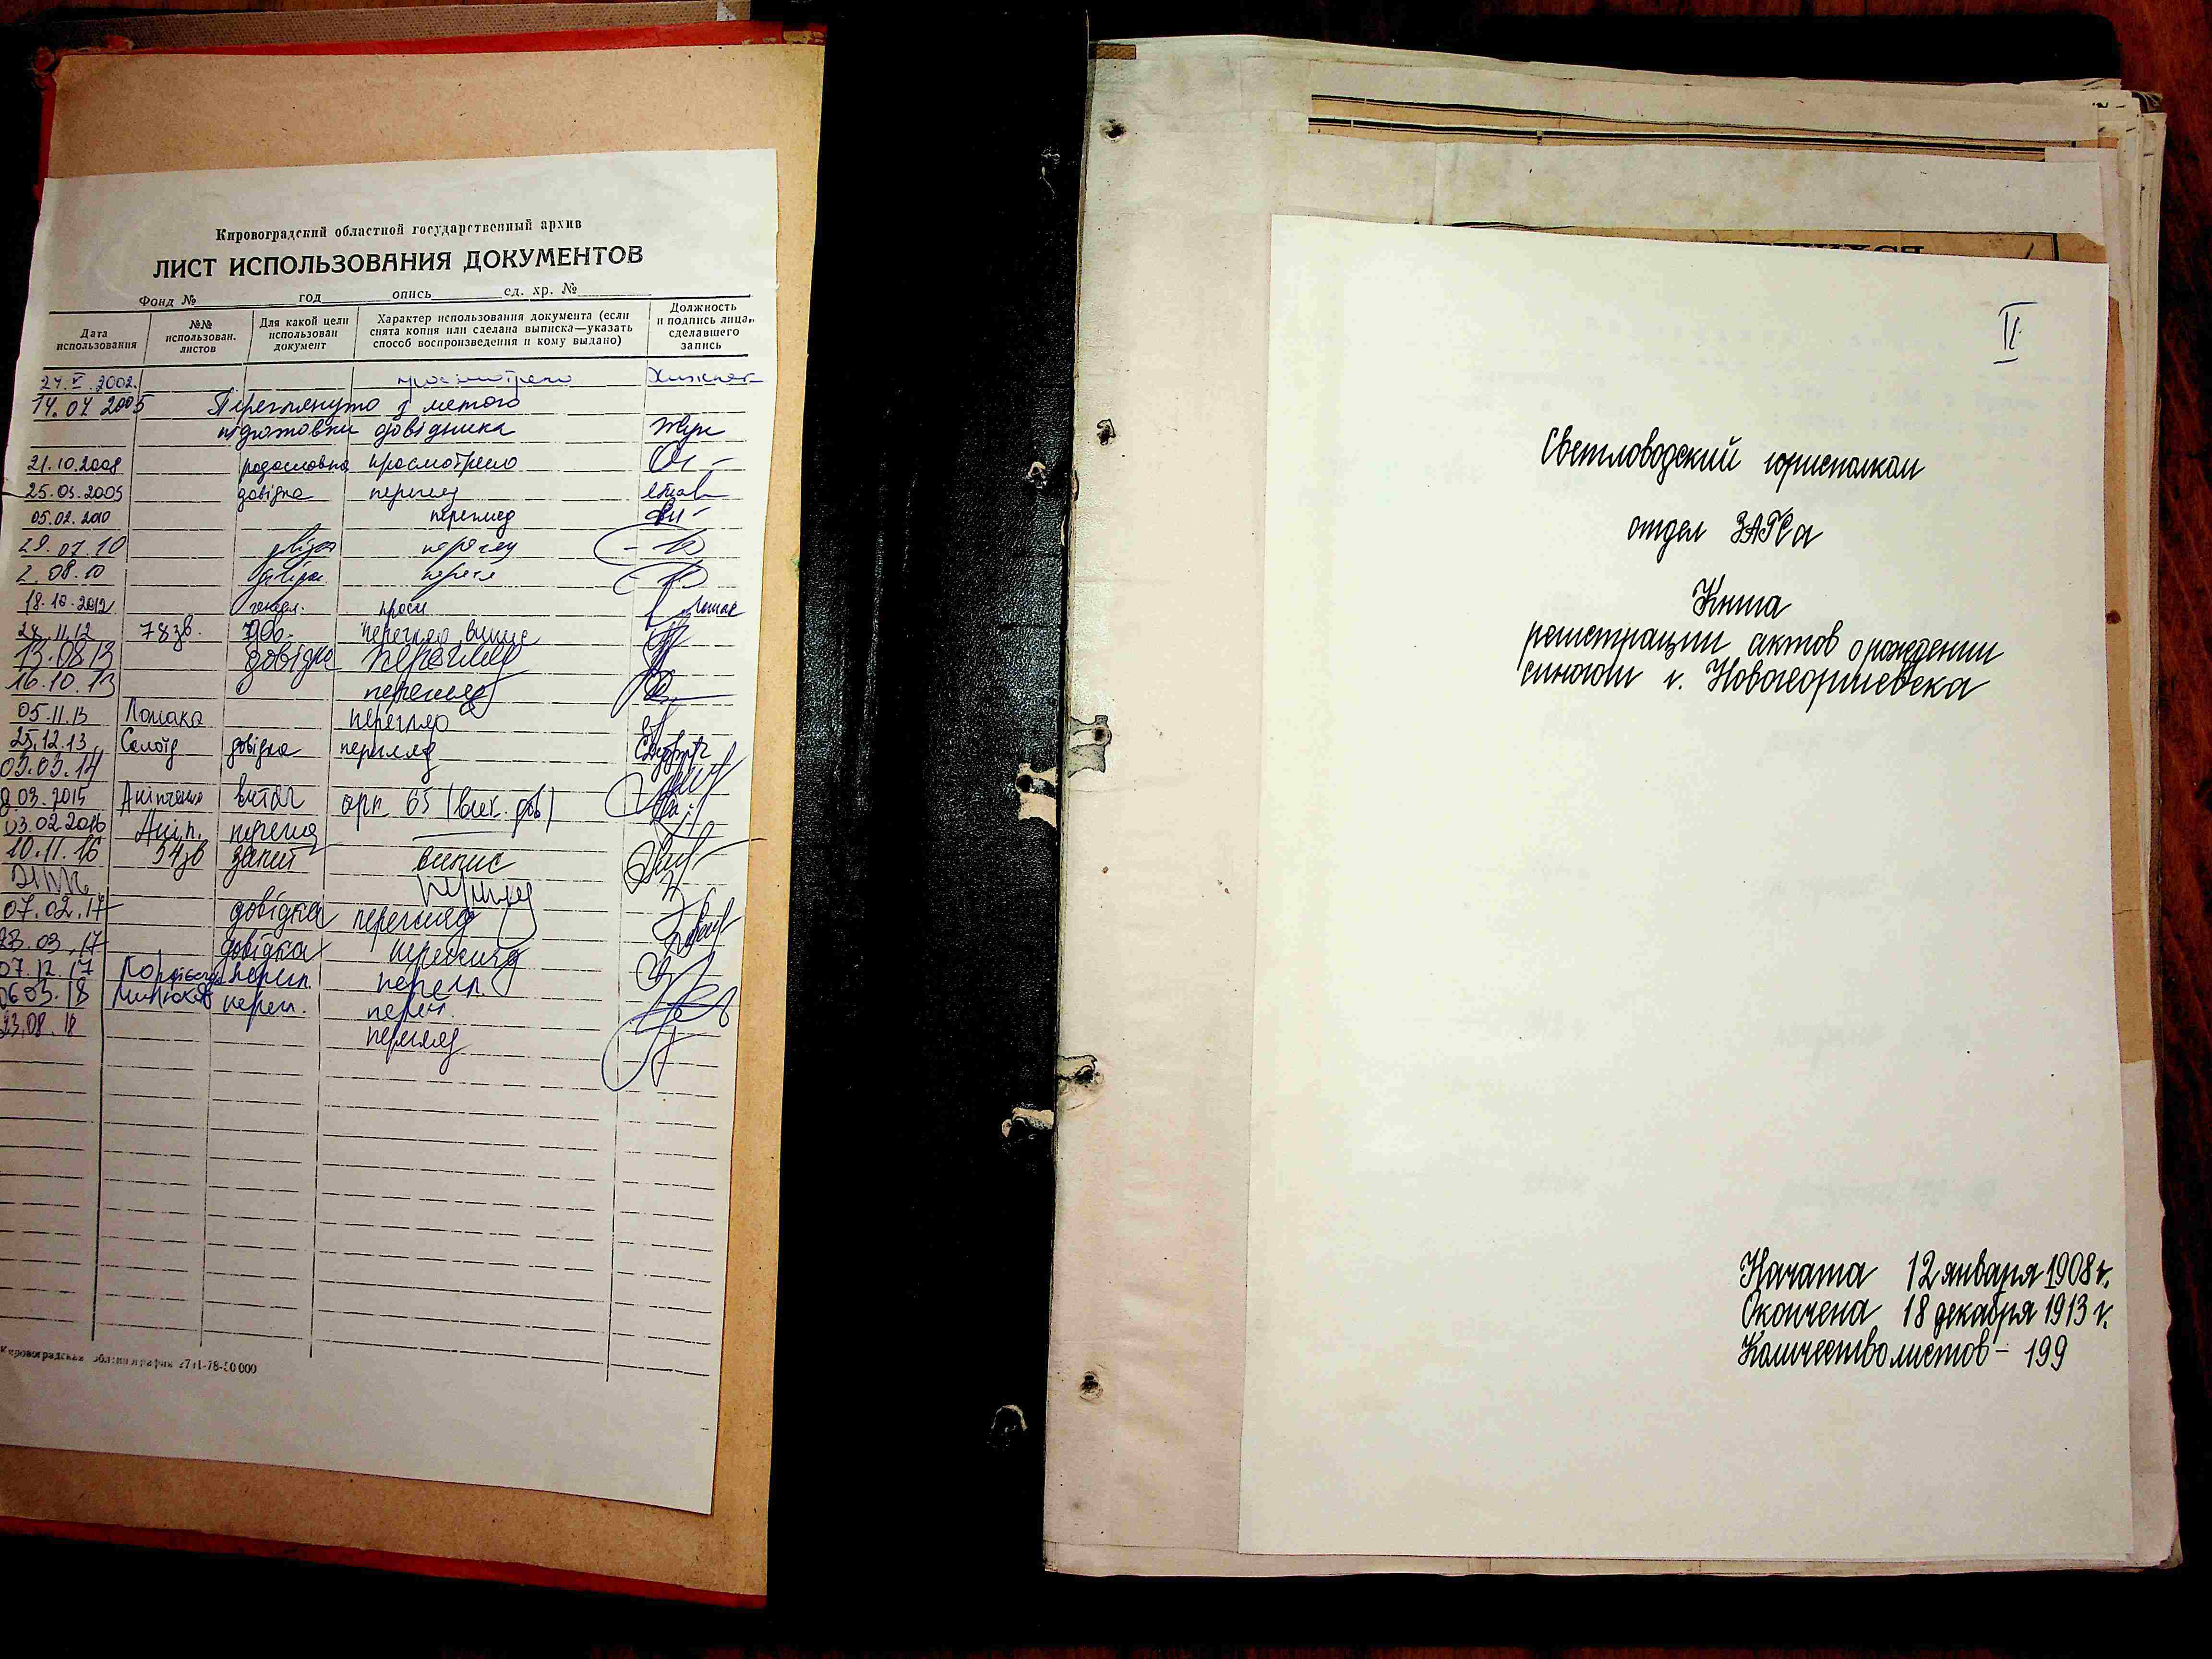 Кировоградский областной государственный архив
ЛИСТ ИСПОЛЬЗОВАНИЯ ДОКУМЕНТОВ
Фонд № год опись ед. хр. №
Дата использования
№№ использован. листов
Для какой цели использован документ
Характер использования документа (если снята копия или сделана выписка—указать способ воспроизведения и кому выдано)
Должность и подпись лица, сделавшего запись
24.V.2002. просмотрено
14.04 2005 Переглянуто з метою
підготовки довідника Жук
21.10.2008 родословна просмотрено
25.03.2005 довідка перегляд
05.02.2010 перегляд
29.07.10 перегляд
2.08.10
18.10.2012
28.11.12 78зв. дов. перегляд, випис
13.08 13 довідка перегляд
16.10.13 перегляд
05.11.13 Ломака перегляд
25.12.13 довідка перегляд
03.03.14
03.2015 витяг арк 65
03.02 2016 Акіп. перегляд
10.11.16 54зв запит випис
перегляд
07.02.17 довідка перегляд
23.03.17 довідка перегляд
07.12.17 перегл. перегл.
06 03.18 перегл. перегл.
23.08.18 перегляд
II
Светловодский горисполком
отдел ЗАГСа
Книга
регистрации актов о рождении
синагоги г. Новогеоргиевска
Начата 12 января 1908 г.
Окончена 18 декабря 1913 г.
Количество листов - 199